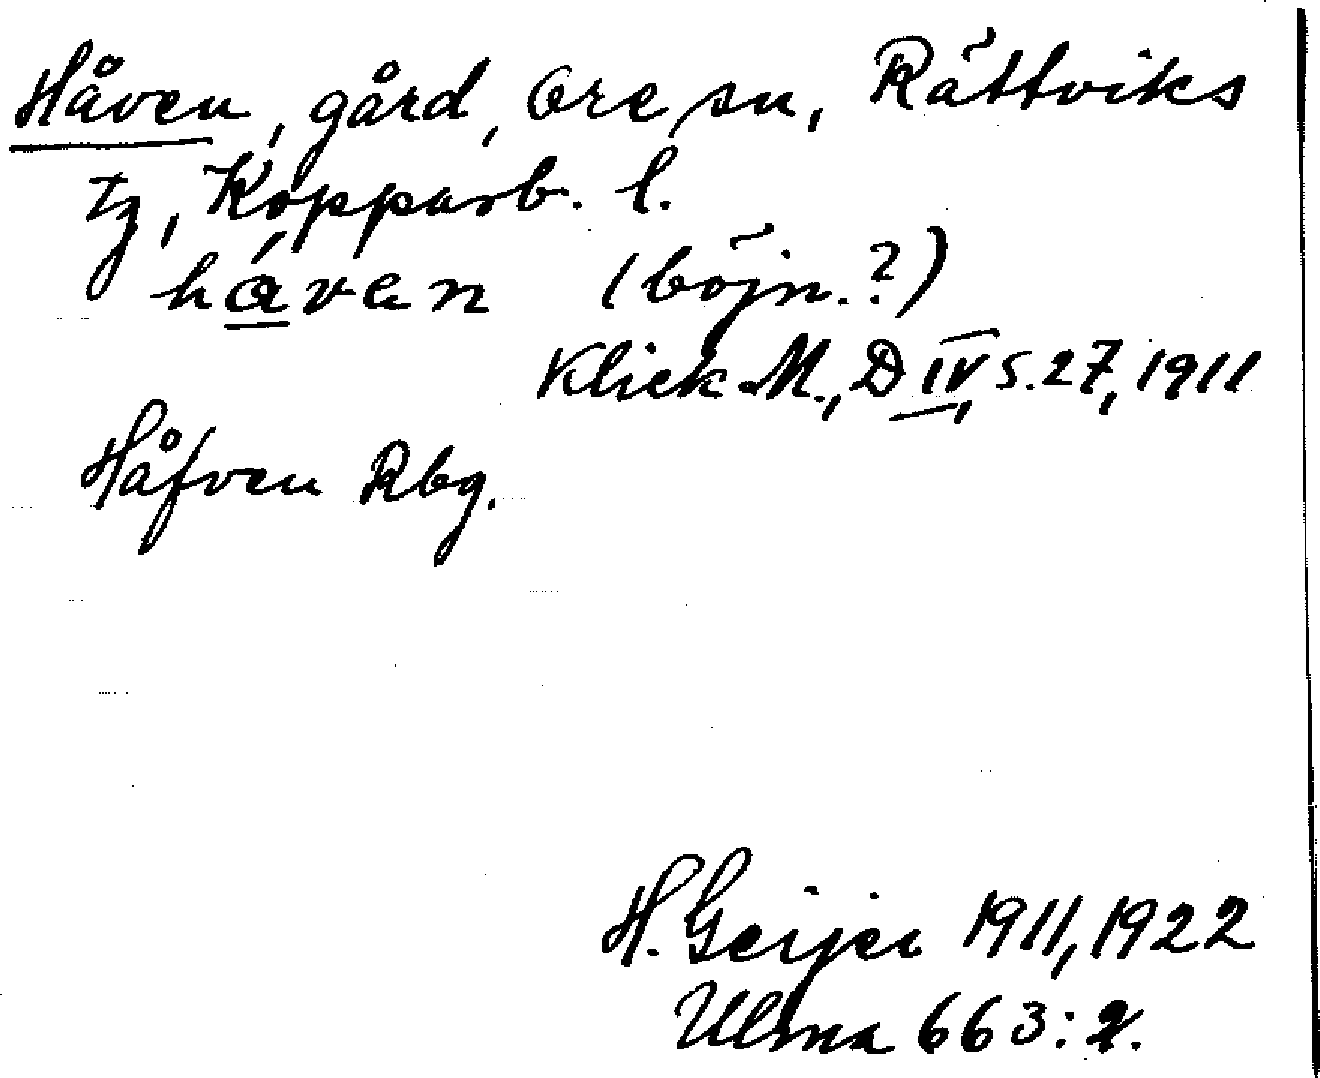 Håven, gård, Ore sn, Rättviks
tg, Kopparb. l.
há̲ven (böjn.?)
Klick M., D IV, s. 27, 1911
Håfven Rbg.
H. Geijer 1911, 1922
Ulma 663:2.